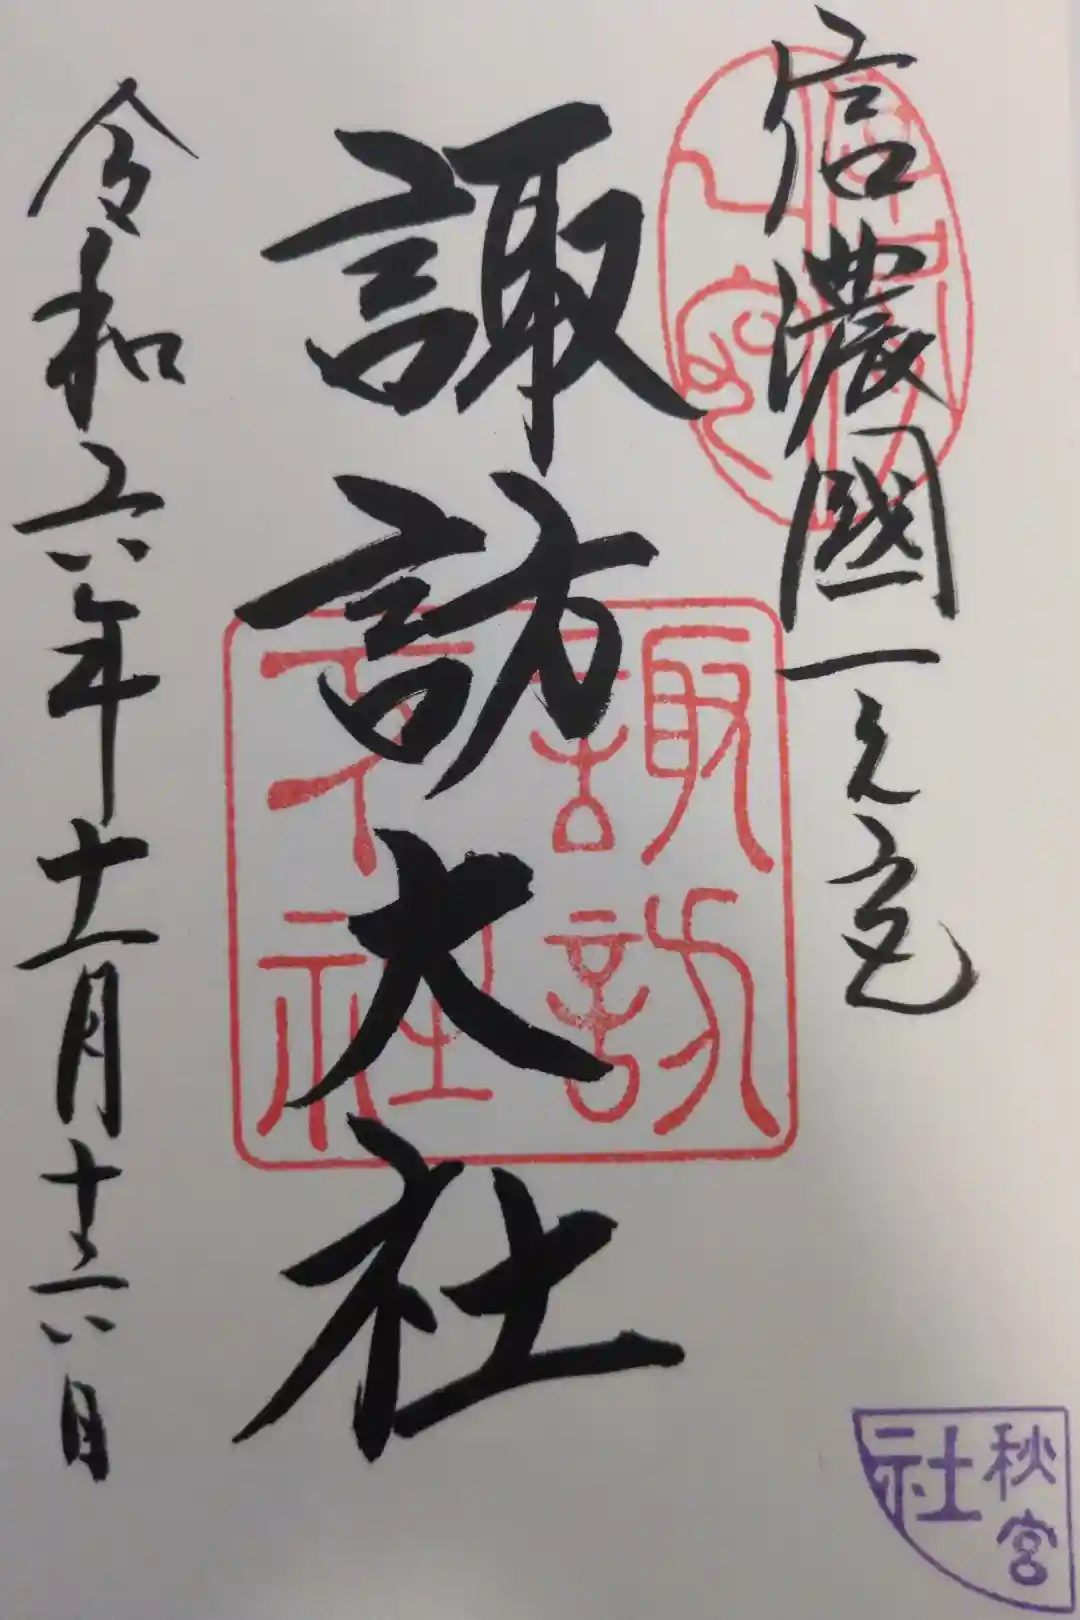 信濃國一之宮
諏訪大社
令和六年十一月十六日
諏訪
大社
秋宮
社